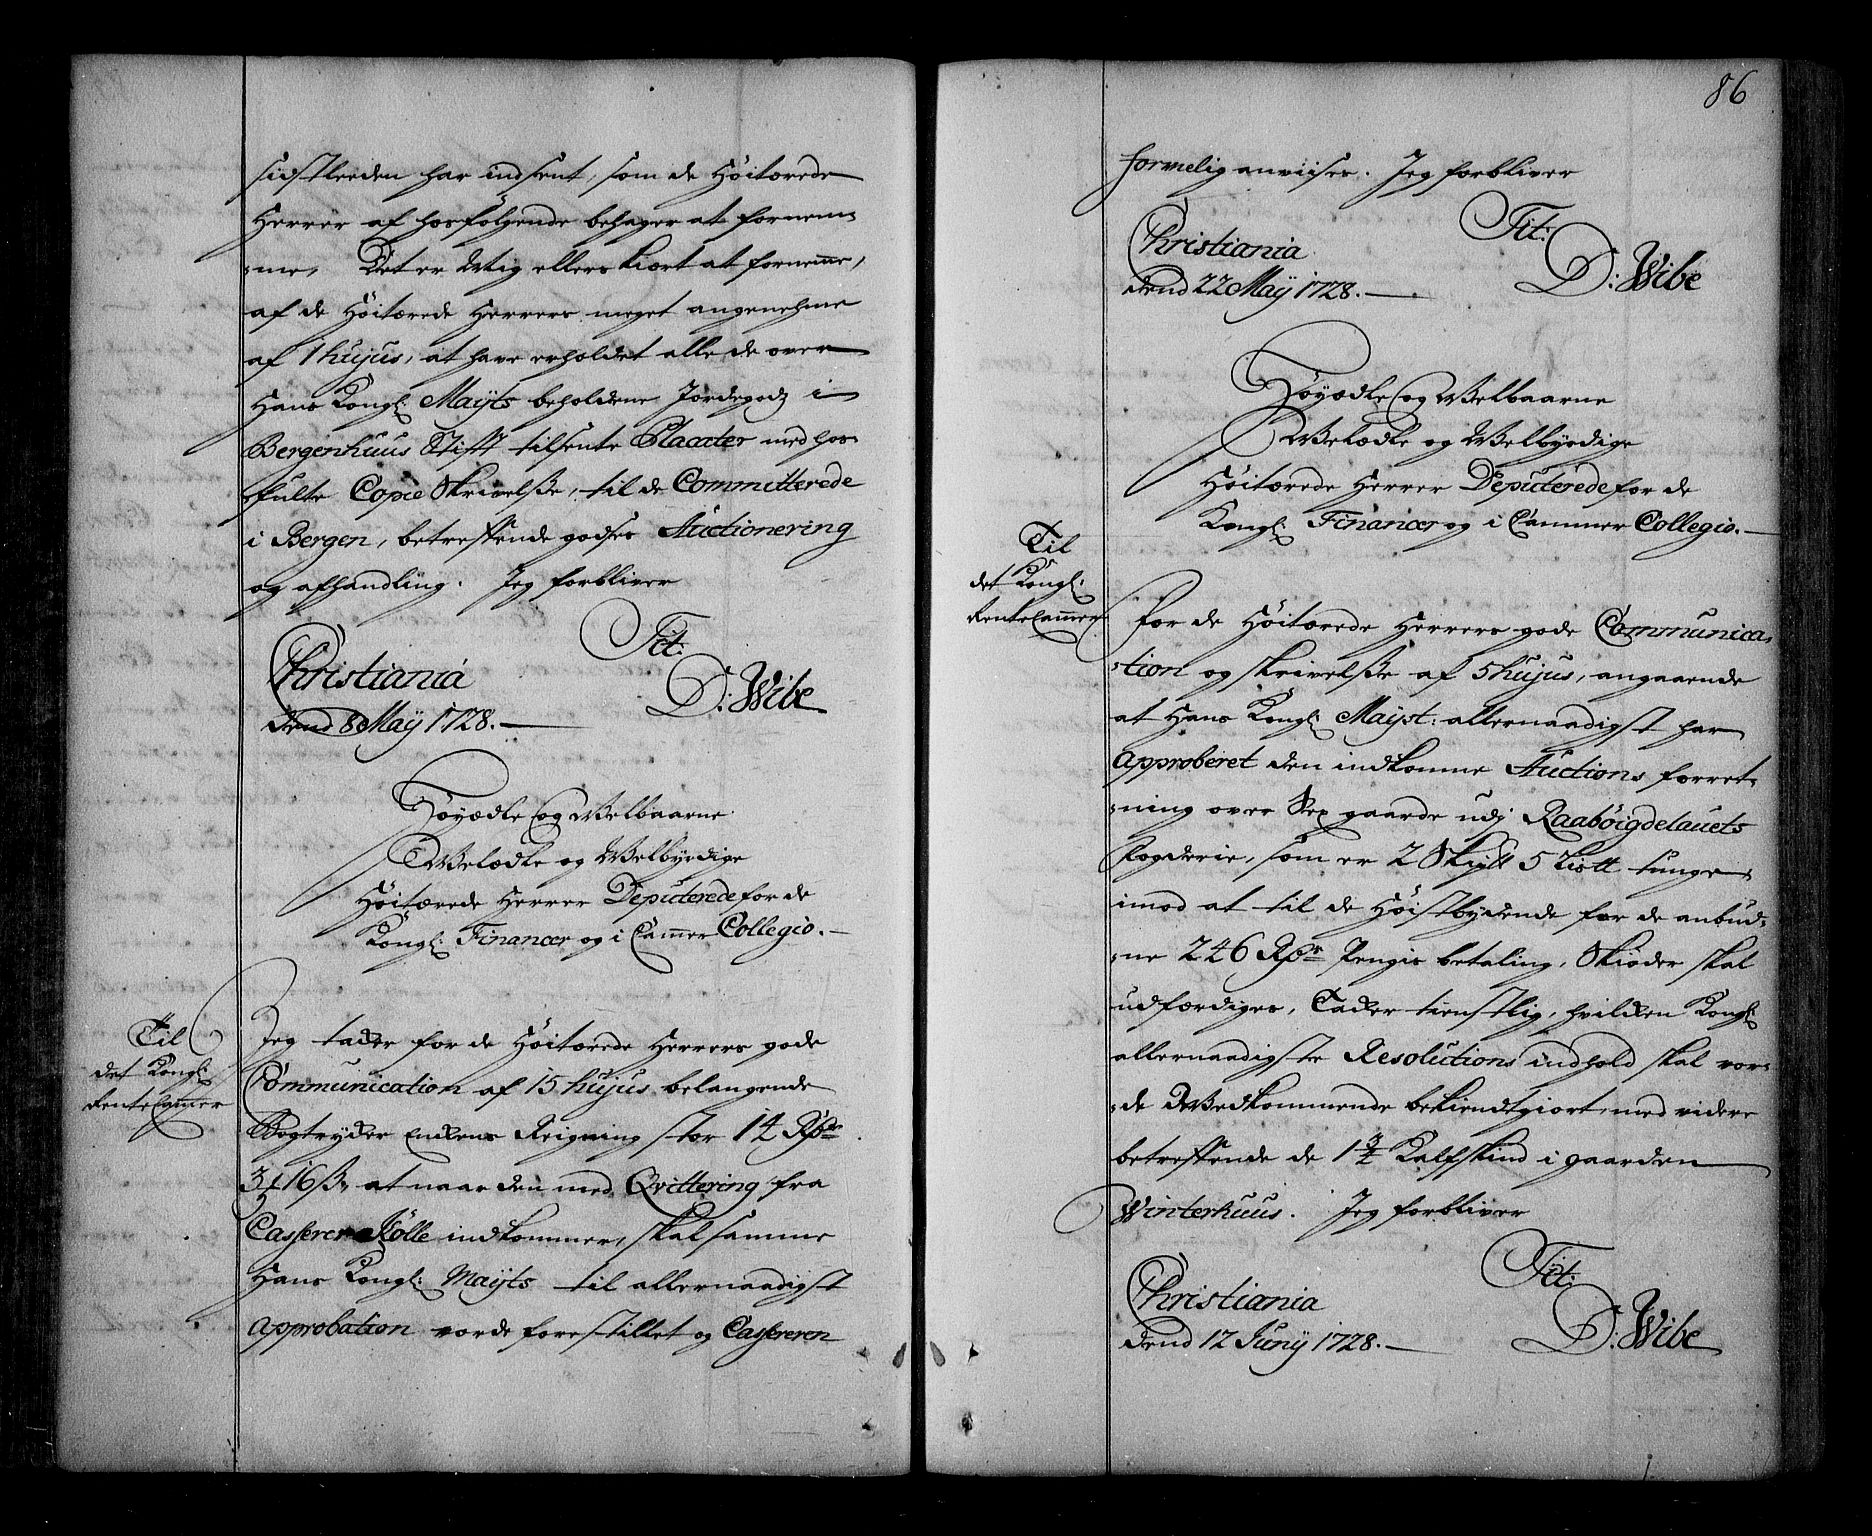 sidstleeden har indsent, som de Høitærede
Herrer af hosfølgende behager at fornem=
=me. Det er Mig ellers kiært at fornemme,
af de Høitærede Herrers meget angenehme
af 1 hujus, at have erholdet alle de over
Hans Kongl: Mayts beholdene Jordegodz i
Bergenhuus Stift tilsente Placater med hos=
fulte Copie Skrivelsse, til de Committerede
i Bergen, betreffende godses Auctionering
og afhandling. Jeg forbliver
Tit:
Christiania
dend 8 May 1728.
D: Wibe
Høyædle og Welbaarne
Welædle og Welbyrdige
Høitærede Herrer Deputerede for de
Kongl: Financer og i Cammer Collegio.
Til
det Kongl:
RenteCammer
Jeg tacker for de Høitærede Herrers gode
Communication af 15 hujus belangende
Bogtrycker Regning stor 14 Rdr
3 16 ß, at naar den med Qvittering fra
Casserer Kølle indkommer, skal samme
Hans Kongl: Mayts til allernaadigst
Approbation vorde forestillet og Cassereren
86
formelig anviises. Jeg forbliver
Tit:
Christiania
dend 22 May 1728.
D: Wibe
Høyædle og Welbaarne
Welædle og Welbyrdige
Høitærede Herrer Deputerede for de
Kongl: Financer og i Cammer Collegio.
Til
det Kongl:
RenteCammer
For de Høitærede Herrers gode Communica=
=tion og skrivelsse af 5 hujus, angaaende
at Hans Kongl: Mayst: allernaadigst har
Approberet den indkomne Auctions forret=
=ning over gaarde udj Raabøigdelauets
Fogderie, som er 2 5 tunge
imod at til de Høistbydende for de anbud=
=ne 246 Rdr Pengis betaling, Skiøder skal
udfærdiges, Tacker tienstlig, hvilcken Kongl:
allernaadigste Resolutions indhold skal vor=
=de Vedkommende bekiendtgiort, med videre
betreffende de 1 3/4 Kalfskind i gaarden
Winterhuus. Jeg forbliver
Tit:
Christiania
dend 12 Junij 1728.
D: Wibe